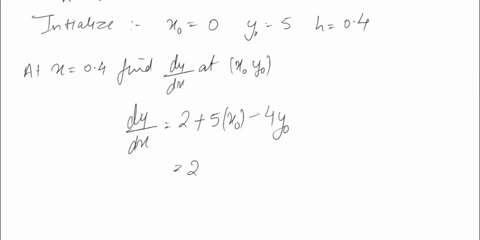 Initialize :- x₀ = 0 y₀ = 5 h = 0.4
At x = 0.4 find dy/dx at (x₀ y₀)
dy/dx = 2 + 5(x₀) - 4y₀
= 2